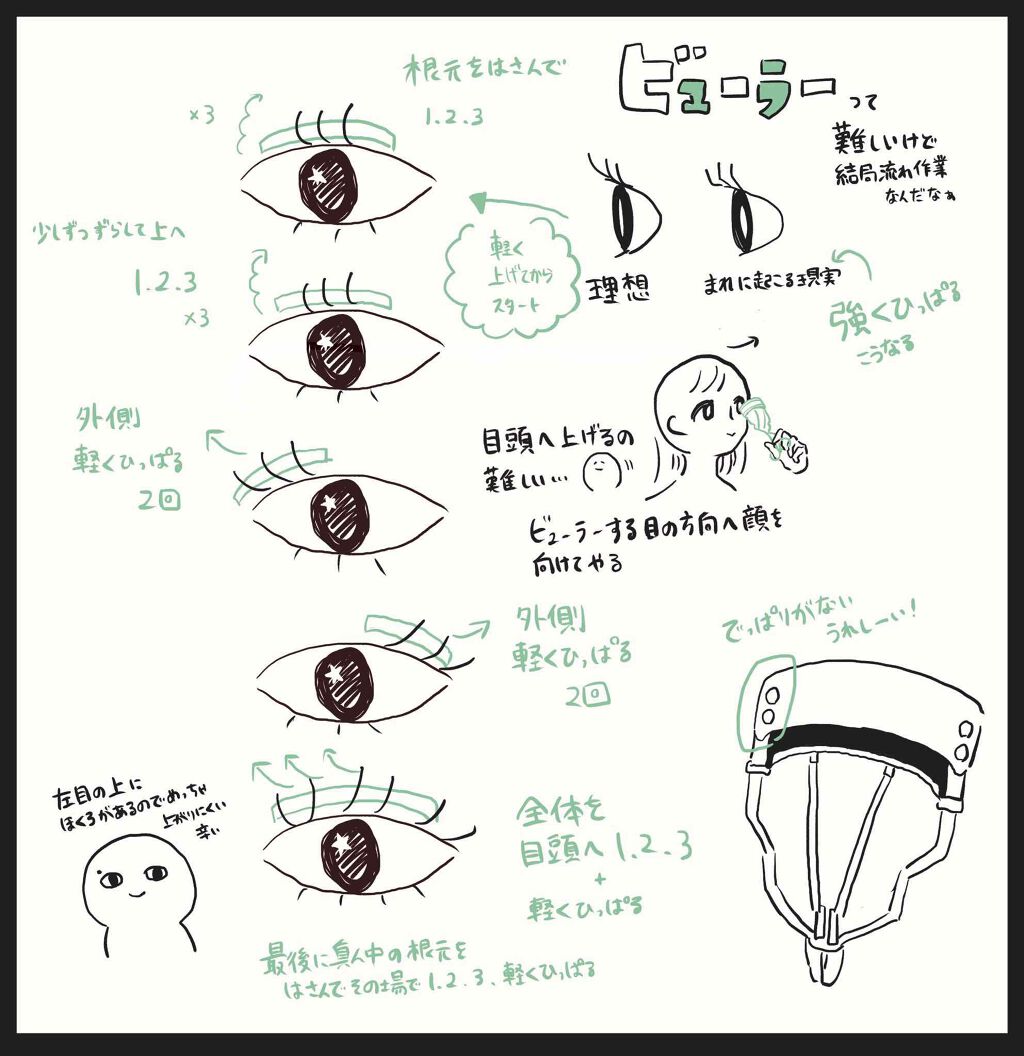 ビューラーって
難しいけど
結局流れ作業
なんだなぁ
根元をはさんで
1.2.3
×3
少しずつずらして上へ
1.2.3
×3
軽く
上げてから
スタート
理想
まれに起こる現実
強くひっぱる
こうなる
外側
軽くひっぱる
2回
目頭へ上げるの
難しい…
ビューラーする目の方向へ顔を
向けてやる
外側
軽くひっぱる
2回
でっぱりがない
うれしーい!
左目の上に
ほくろがあるのでめっちゃ
上がりにくい
辛い
全体を
目頭へ1.2.3
+
軽くひっぱる
最後に真ん中の根元を
はさんでその場で1.2.3、軽くひっぱる